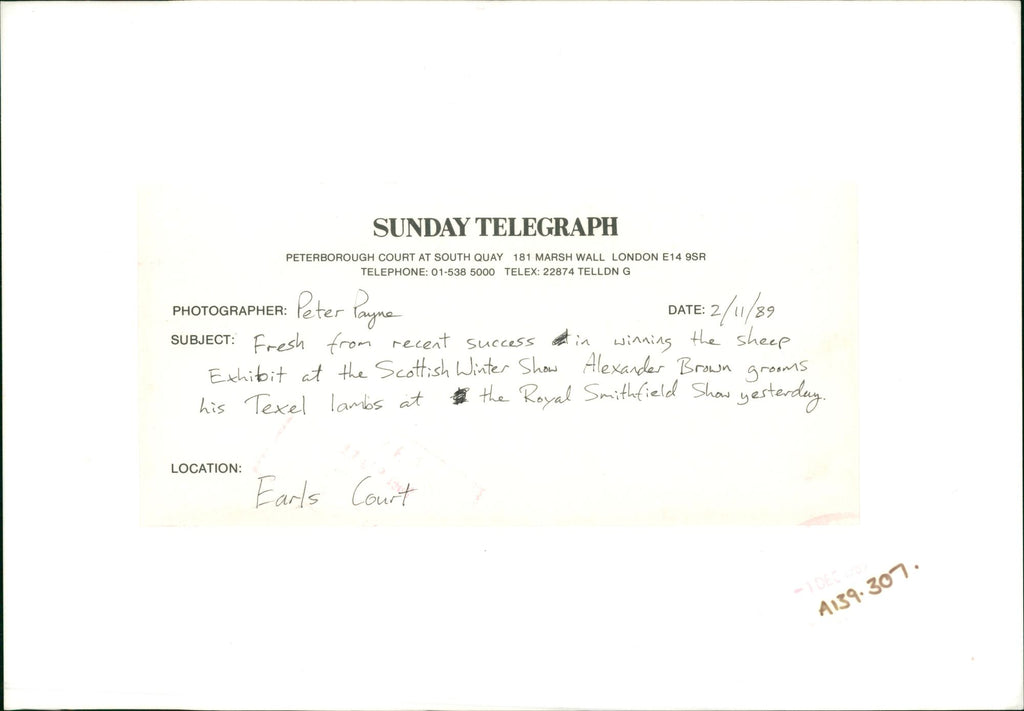 SUNDAY TELEGRAPH
PETERBOROUGH COURT AT SOUTH QUAY 181 MARSH WALL LONDON E14 9SR
TELEPHONE: 01-538 5000 TELEX: 22874 TELLDN G
PHOTOGRAPHER: Peter Payne DATE: 2/11/89
SUBJECT: Fresh from recent success in winning the sheep
Exhibit at the Scottish Winter Show Alexander Brown grooms
his Texel lambs at the Royal Smithfield Show yesterday.
LOCATION:
Earls Court
-1 DEC
A139.307.